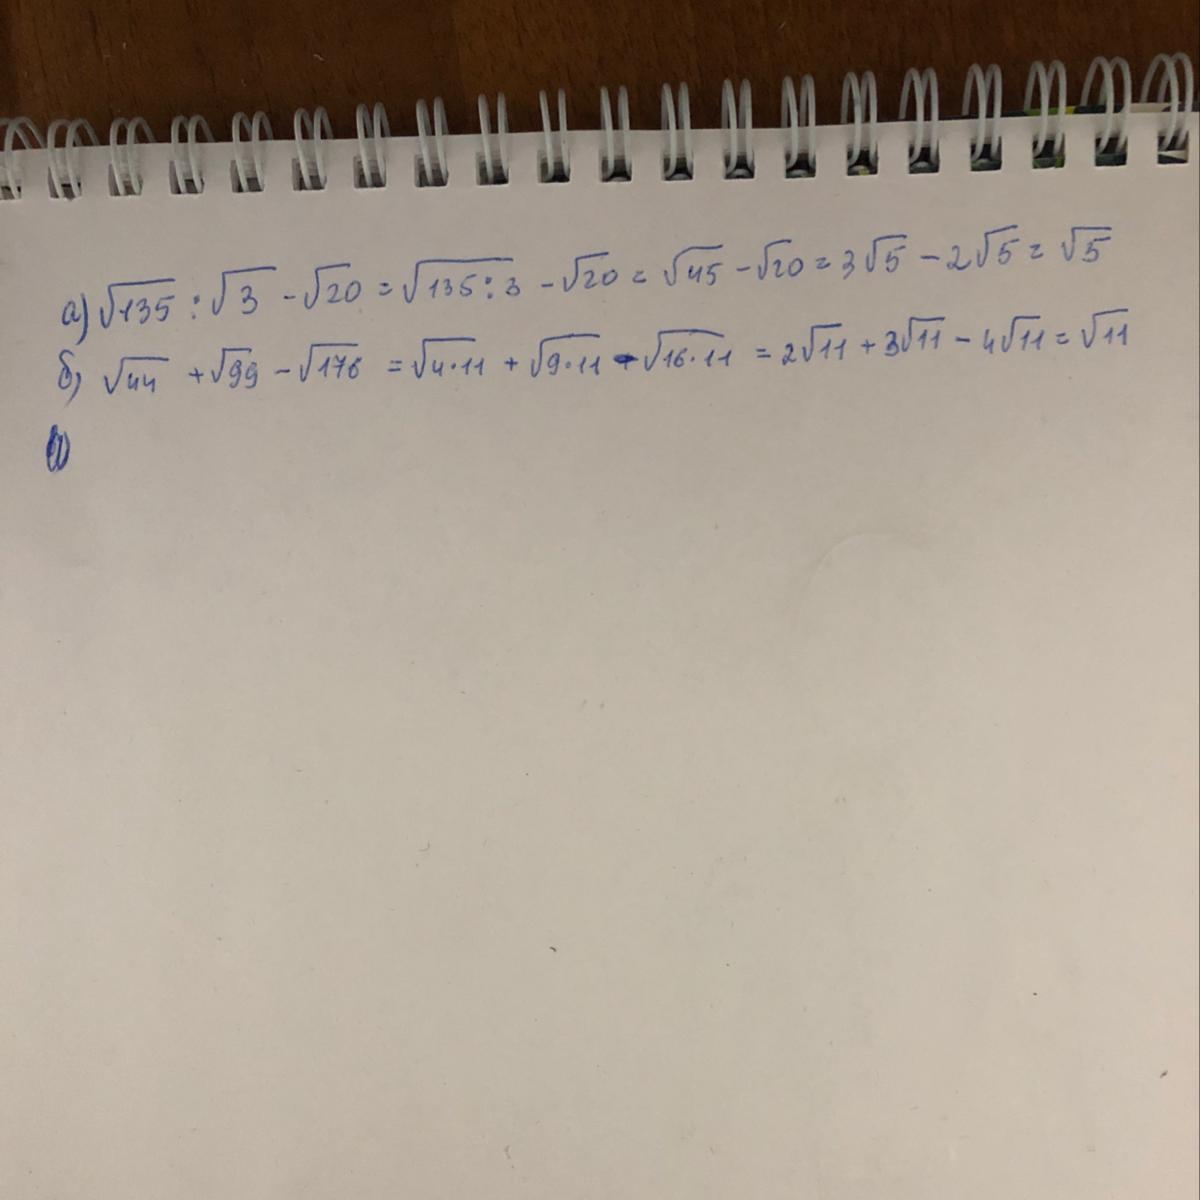 а) √135 : √3 - √20 = √135:3 - √20 = √45 - √20 = 3√5 - 2√5 = √5
б) √44 + √99 - √176 = √4·11 + √9·11 - √16·11 = 2√11 + 3√11 - 4√11 = √11